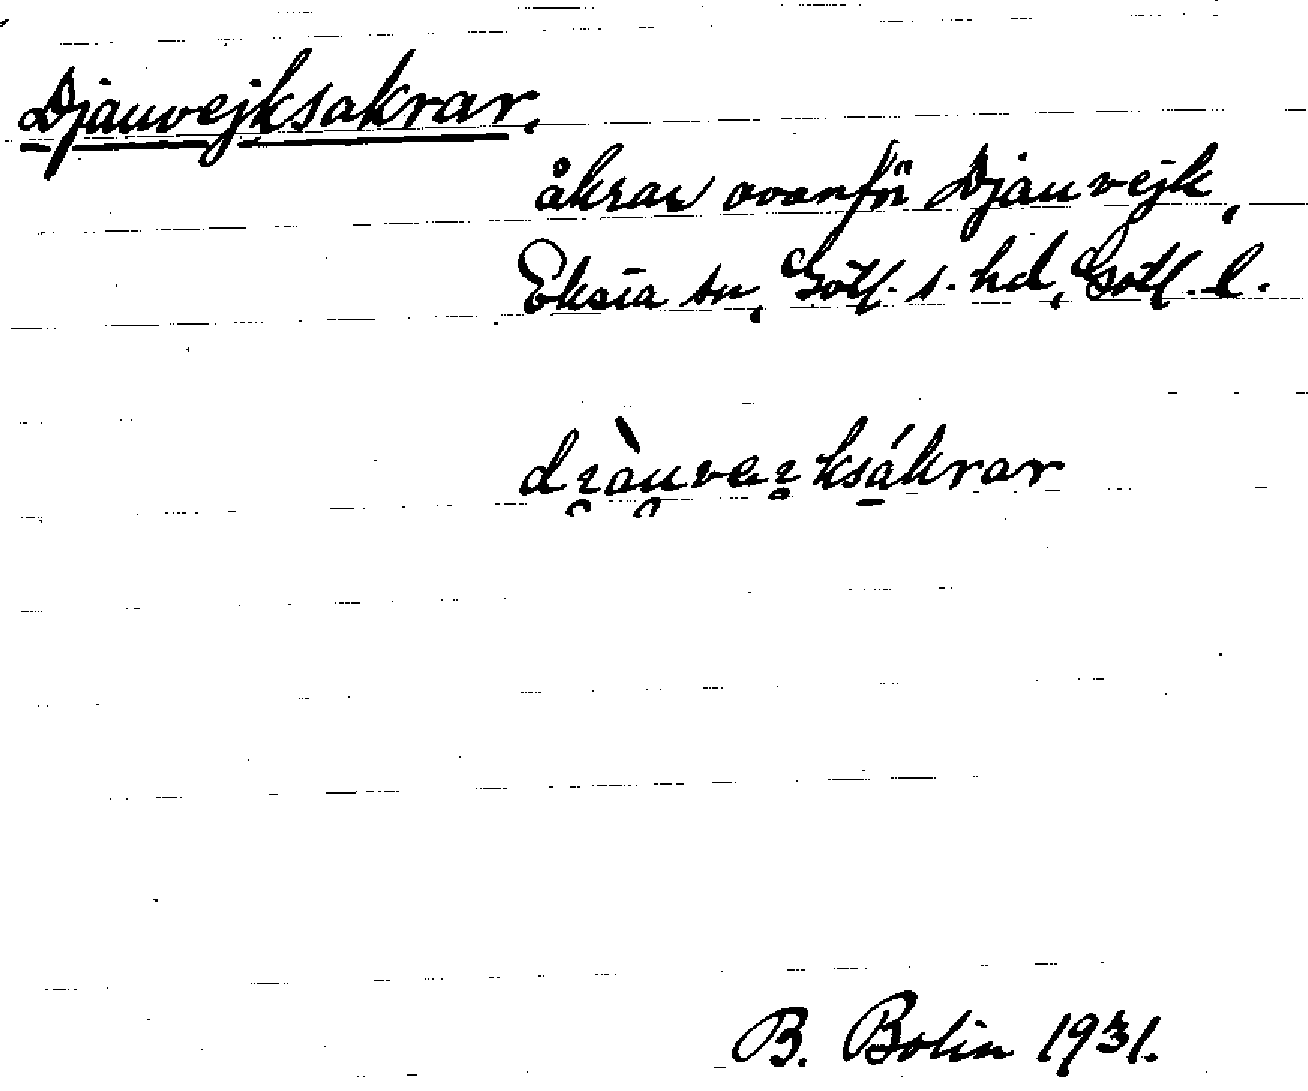 Djauvejksakrar.
åkrar ovanför Djauvejk,
Eksta sn, Gotl. s. hd, Gotl. l.
B. Bolin 1931.